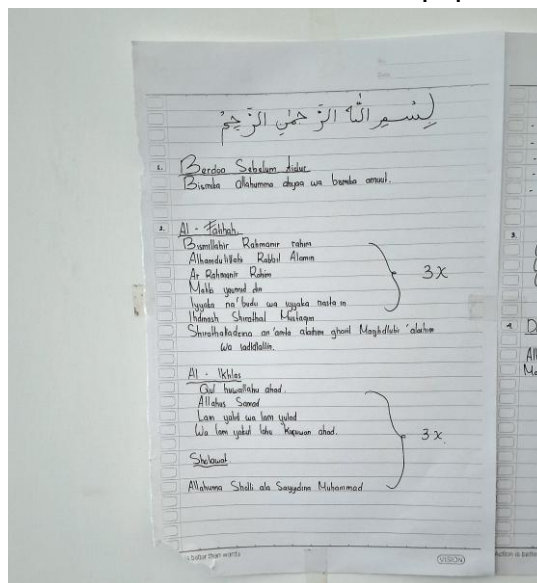 بِسْمِ اللَّهِ الرَّحْمٰنِ الرَّحِيْمُ
No.
Date
1. Berdoa Sebelum tidur
Bismika Allahumma ahyaa wa bismika amuut.
2. Al - Fatihah
Bismillahir Rahmanir rahim
Alhamdulillahi Rabbil Alamin
Ar Rahmanir Rahim
Maliki yaumid din
Iyyaka na'budu wa iyyaka nasta in
Ihdinash Shirathal Mustaqim
Shirathalladzina an'amta alaihim ghoiril Maghdlubi 'alaihim
wa ladldlallin.
3X
Al - Ikhlas
Qul huwallahu ahad.
Allahus Somad
Lam yalid wa lam yulad
Wa lam yakul lahu kupuwan ahad.
Sholawat
Allahuma Sholli ala Sayyidina Muhammad
3X
better than words
VISION
3.
4. D
All
Ma
Action is bette